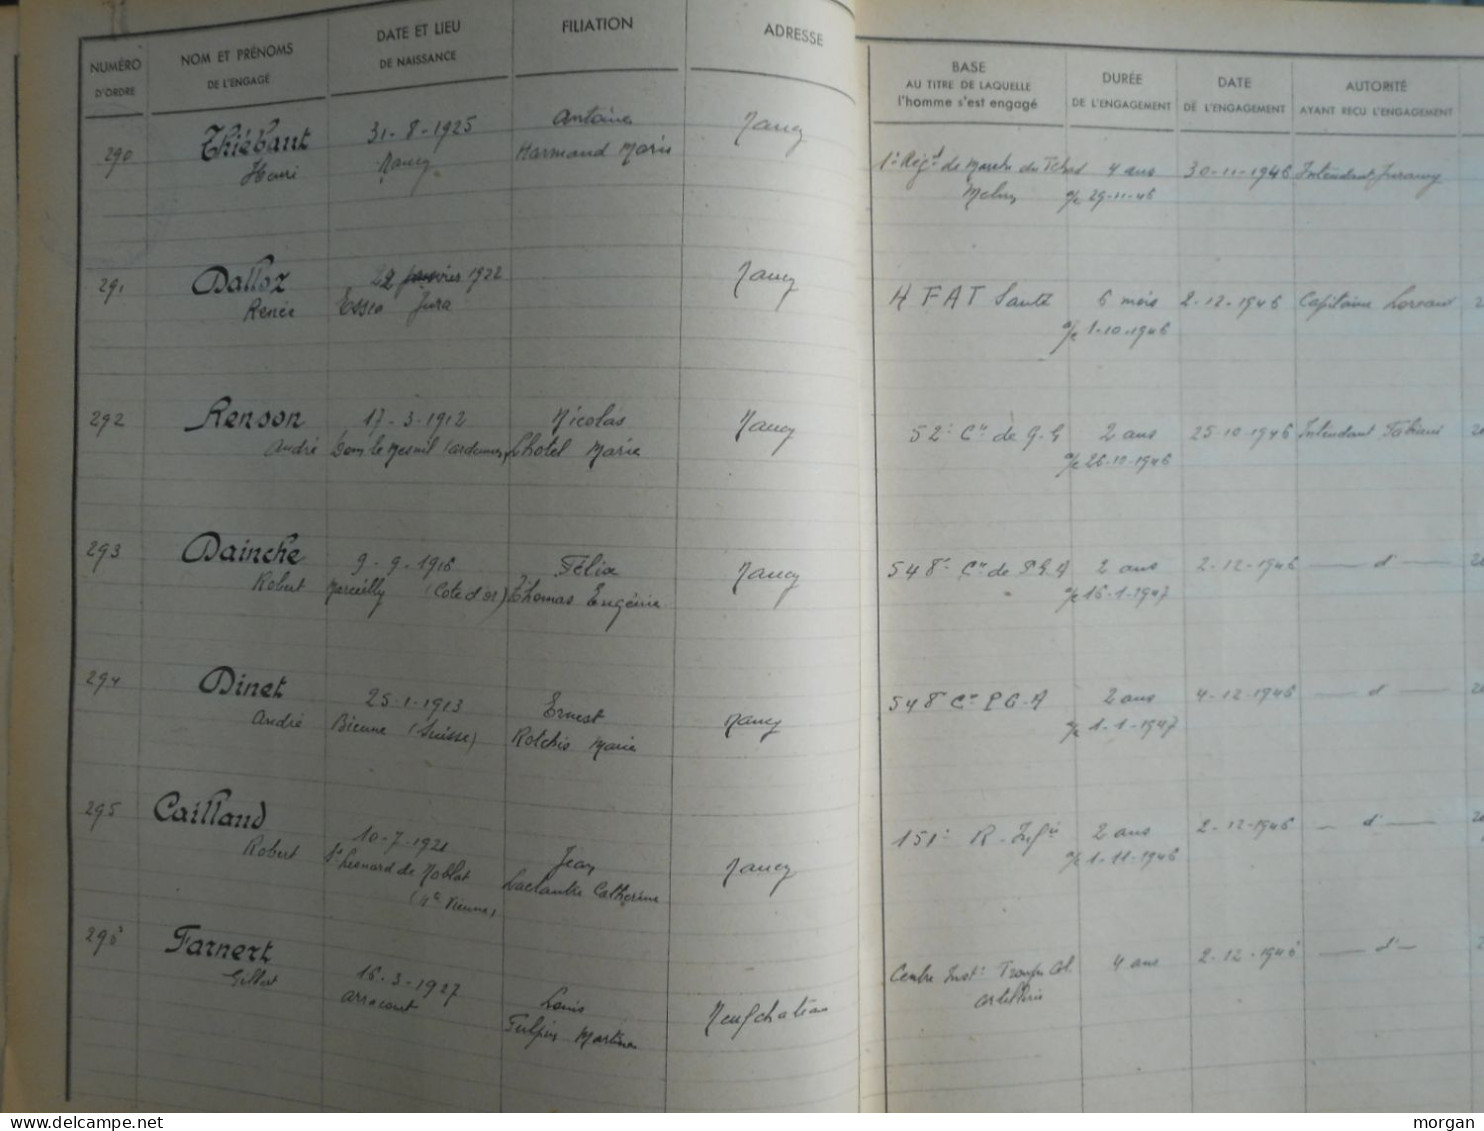 NUMÉRO D'ORDRE
NOM ET PRÉNOMS DE L'ENGAGÉ
DATE ET LIEU DE NAISSANCE
FILIATION
ADRESSE
BASE AU TITRE DE LAQUELLE l'homme s'est engagé
DURÉE DE L'ENGAGEMENT
DATE DE L'ENGAGEMENT
AUTORITÉ AYANT REÇU L'ENGAGEMENT
290 Thiébaut 31-8-1925 Antoine Nancy 1er Régt de Marche du Tchad 4 ans 30-11-1946 Intendant
Henri Nancy Harmand Marie Melun 29-11-46
291 Dalloz 22 janvier 1922 Nancy A F A T Santé 6 mois 2-12-1946 Capitaine
Renée Jura 1-10-1946
292 Renson 17-3-1912 Nicolas Nancy 52e Cie de Q.G 2 ans 25-10-1946 Intendant
André Dom le Mesnil (Ardennes) Lhotel Marie 26-10-1946
293 Dainche 9-9-1916 Félix Nancy 548e Cie de P.G.A 2 ans 2-12-1946 d°
Robert Marcilly (Cote d'or) Thomas Eugénie 16-1-1947
294 Dinet 25-1-1913 Ernest Nancy 548e Cie P.G.A 2 ans 4-12-1946 d°
André Bienne (Suisse) Marie 1-1-1947
295 Caillaud 10-7-1921 Jean Nancy 151e R. Infie 2 ans 2-12-1946 d°
Robert St Léonard de Noblat Catherine 1-11-1946
(Hte Vienne)
296 Farnert 16-3-1927 Louis Neufchateau Centre Inst. Col. 4 ans 2-12-1946 d°
Gilbert Arracourt Martine artillerie
delcampe.net
morgan